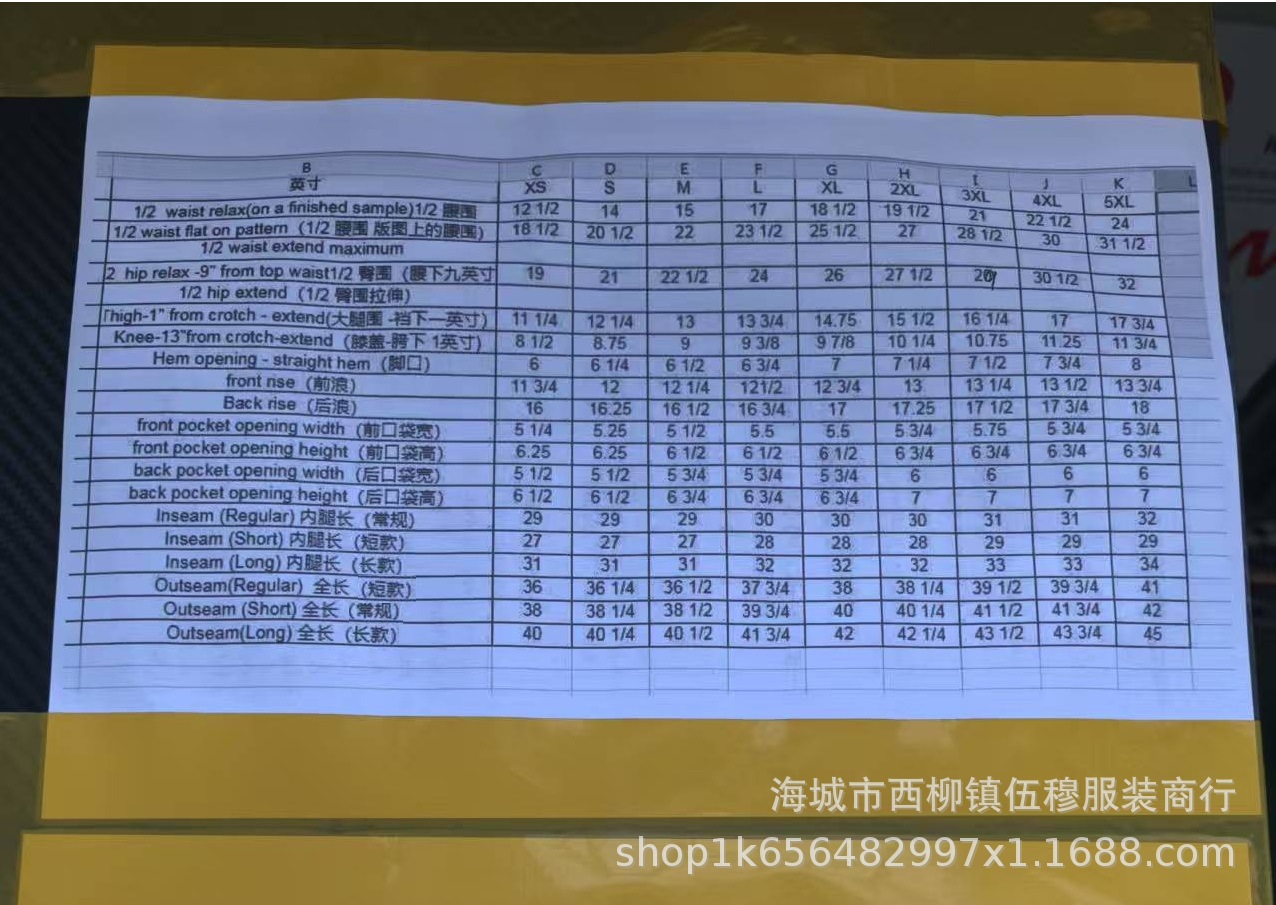 B C D E F G H I J K L
英寸 XS S M L XL 2XL 3XL 4XL 5XL
1/2 waist relax(on a finished sample)1/2 腰围 12 1/2 14 15 17 18 1/2 19 1/2 21 22 1/2 24
1/2 waist flat on pattern（1/2 腰围 版图上的腰围) 18 1/2 20 1/2 22 23 1/2 25 1/2 27 28 1/2 30 31 1/2
1/2 waist extend maximum
2 hip relax -9" from top waist1/2 臀围（腰下九英寸 19 21 22 1/2 24 26 27 1/2 30 1/2 32
1/2 hip extend（1/2 臀围拉伸)
Thigh-1" from crotch - extend(大腿围 -裆下一英寸) 11 1/4 12 1/4 13 13 3/4 14.75 15 1/2 16 1/4 17 17 3/4
Knee-13"from crotch-extend（膝盖-胯下 1英寸) 8 1/2 8.75 9 9 3/8 9 7/8 10 1/4 10.75 11.25 11 3/4
Hem opening - straight hem（脚口） 6 6 1/4 6 1/2 6 3/4 7 7 1/4 7 1/2 7 3/4 8
front rise（前浪） 11 3/4 12 12 1/4 121/2 12 3/4 13 13 1/4 13 1/2 13 3/4
Back rise（后浪） 16 16.25 16 1/2 16 3/4 17 17.25 17 1/2 17 3/4 18
front pocket opening width（前口袋宽） 5 1/4 5.25 5 1/2 5.5 5.5 5 3/4 5.75 5 3/4 5 3/4
front pocket opening height（前口袋高） 6.25 6.25 6 1/2 6 1/2 6 1/2 6 3/4 6 3/4 6 3/4 6 3/4
back pocket opening width（后口袋宽） 5 1/2 5 1/2 5 3/4 5 3/4 5 3/4 6 6 6 6
back pocket opening height（后口袋高） 6 1/2 6 1/2 6 3/4 6 3/4 6 3/4 7 7 7 7
Inseam (Regular) 内腿长（常规） 29 29 29 30 30 30 31 31 32
Inseam (Short) 内腿长（短款） 27 27 27 28 28 28 29 29 29
Inseam (Long) 内腿长（长款） 31 31 31 32 32 32 33 33 34
Outseam(Regular) 全长（短款） 36 36 1/4 36 1/2 37 3/4 38 38 1/4 39 1/2 39 3/4 41
Outseam (Short) 全长（常规） 38 38 1/4 38 1/2 39 3/4 40 40 1/4 41 1/2 41 3/4 42
Outseam(Long) 全长（长款） 40 40 1/4 40 1/2 41 3/4 42 42 1/4 43 1/2 43 3/4 45
海城市西柳镇伍穆服装商行
shop1k656482997x1.1688.com